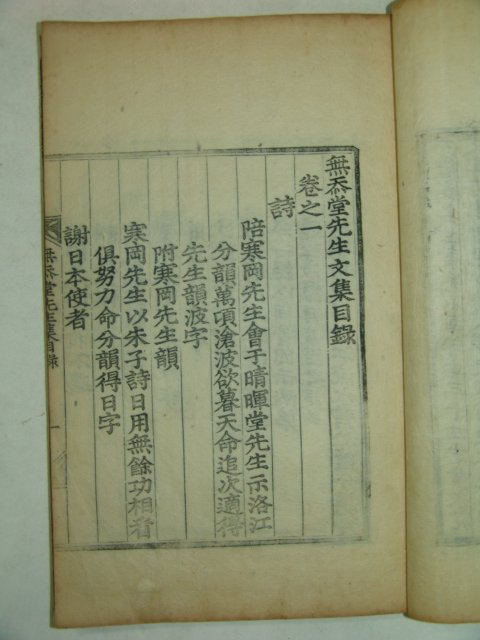 無忝堂先生文集目錄
卷之一
詩
陪寒岡先生會于晴暉堂先生示洛江
分韻萬項滄波欲暮天命追次適得
先生韻波字
附寒岡先生韻
寒岡先生以朱子詩日用無餘功相看
俱努力命分韻得日字
謝日本使者
無忝堂先生集目錄
一